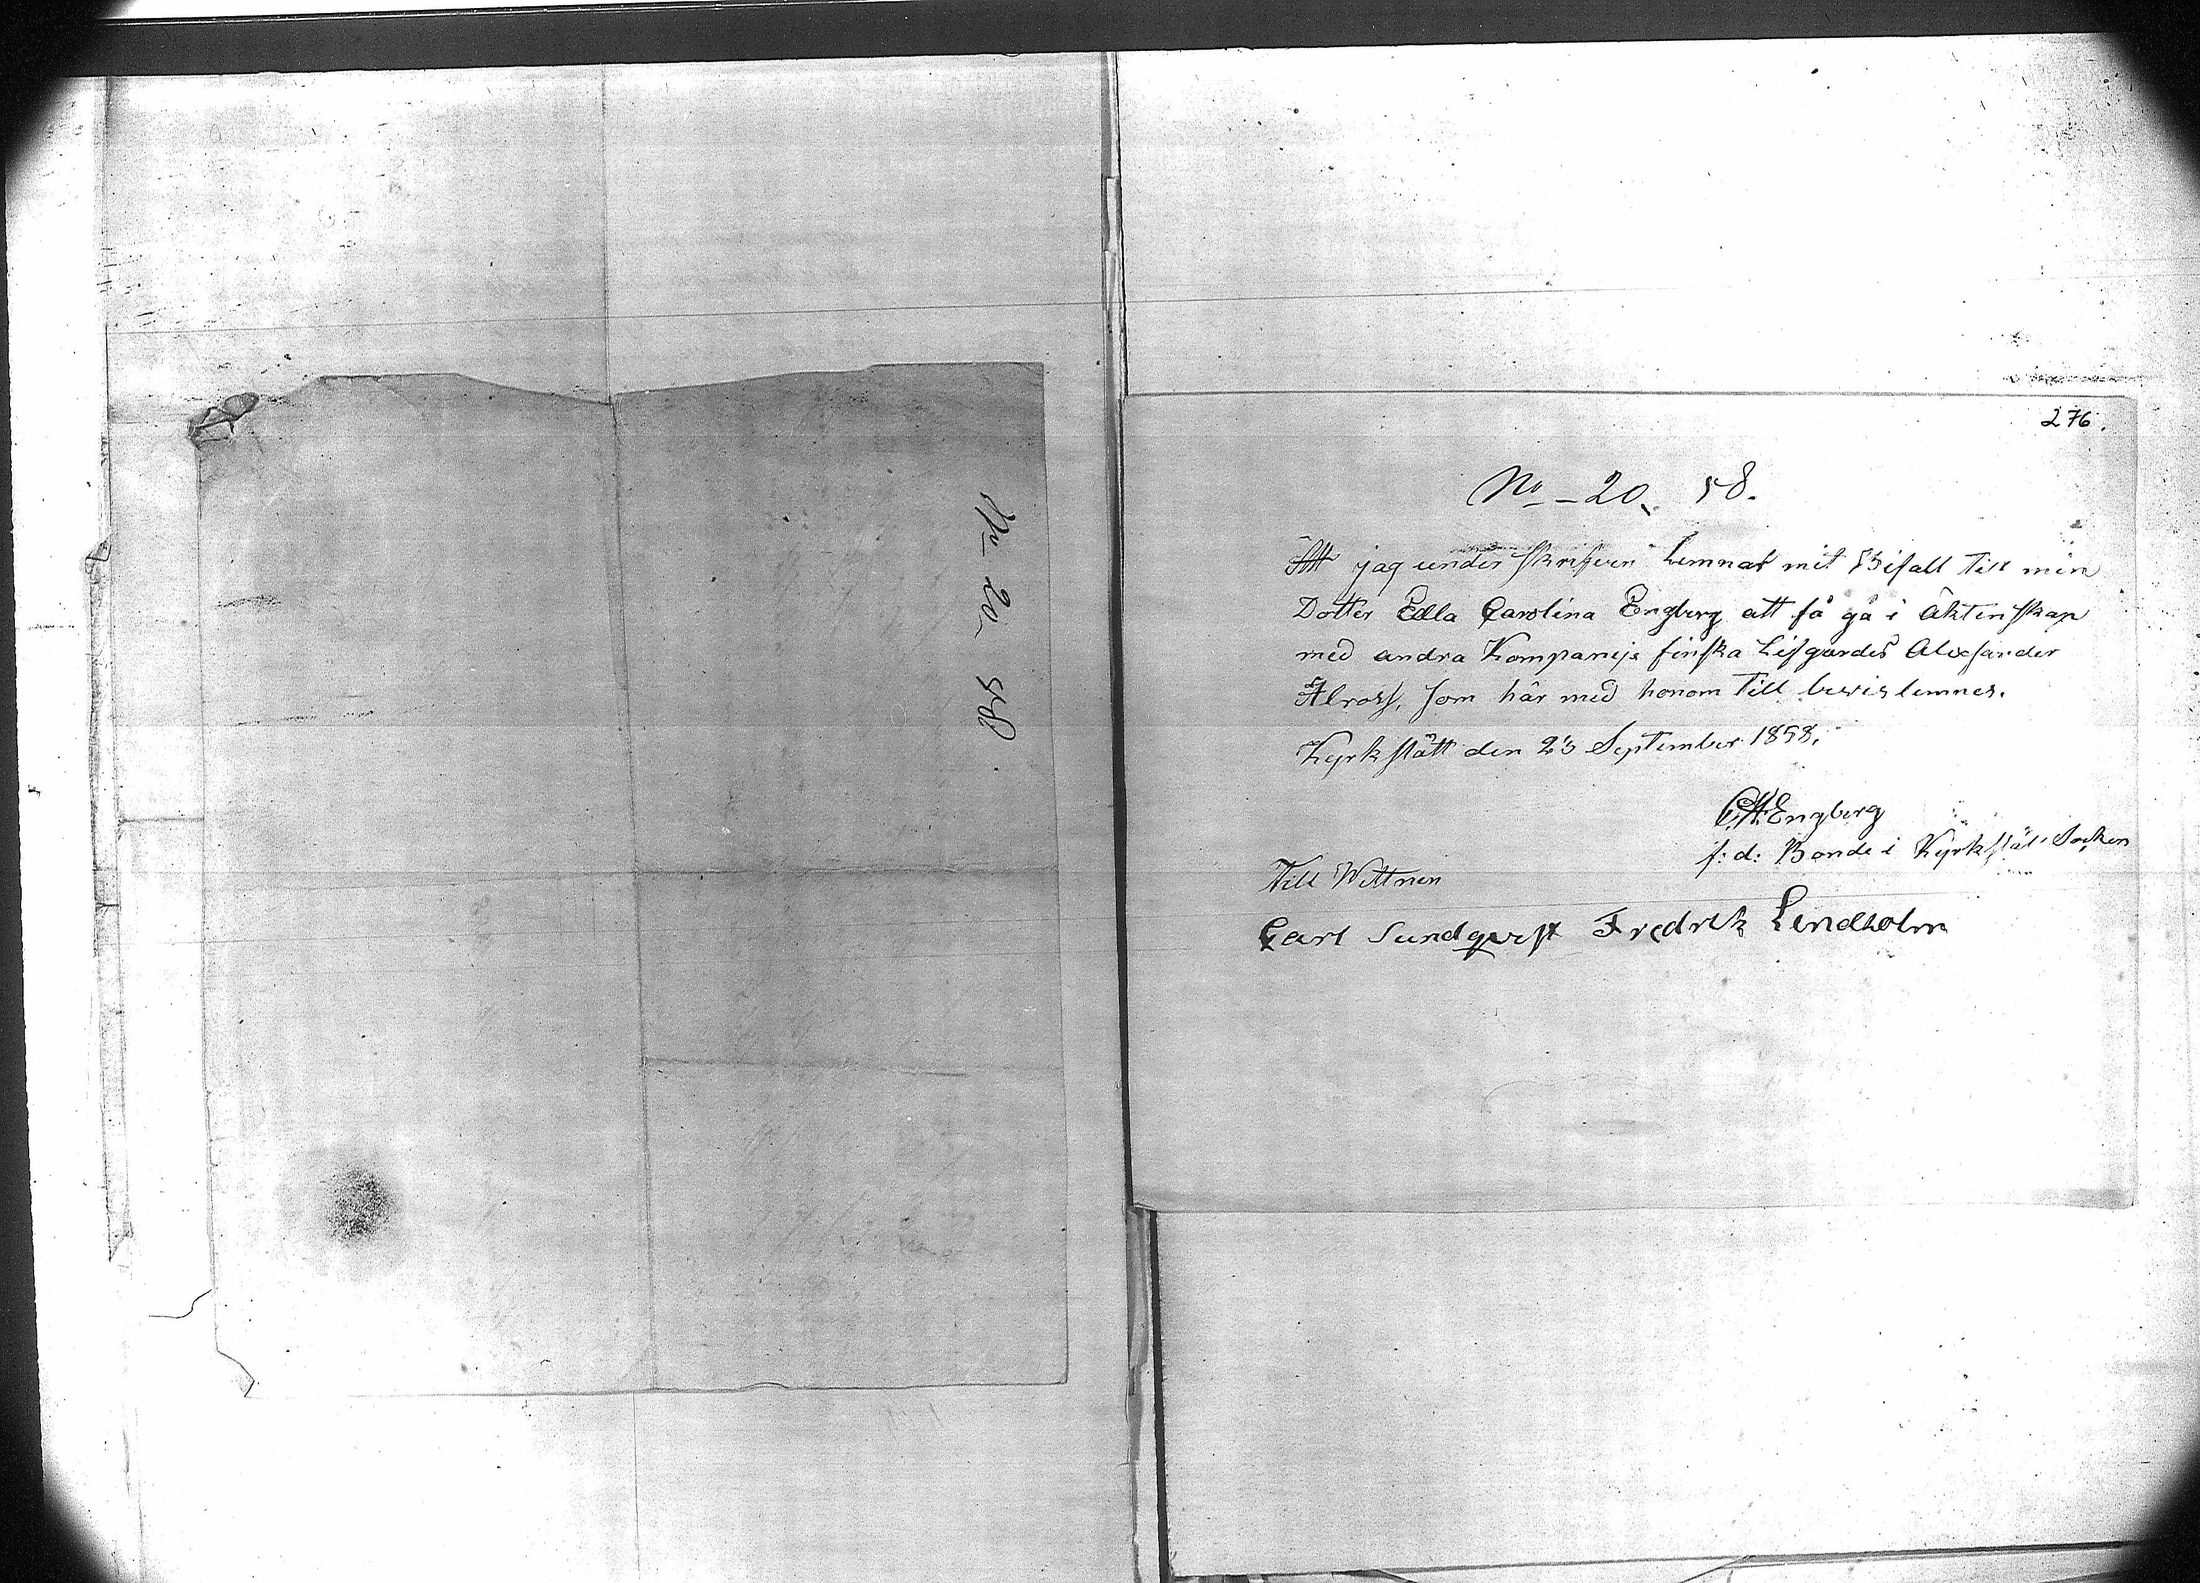 No 20 58.
276.
No - 20. 58.
Att jag under skrifven Lemnar mit Bifall till min
Dotter Edla Carolina Engberg att få gå i äktenskap
med andra Kompanije finska Lifgardes Alexander
Alross, som här med honom till bevis lemnes.
Kyrkslätt den 23 September 1858.
Engberg
f: d: Bonde i Kyrkslät Socken
Till Wittnen
Carl Sundqvist Fredrik Lindholm